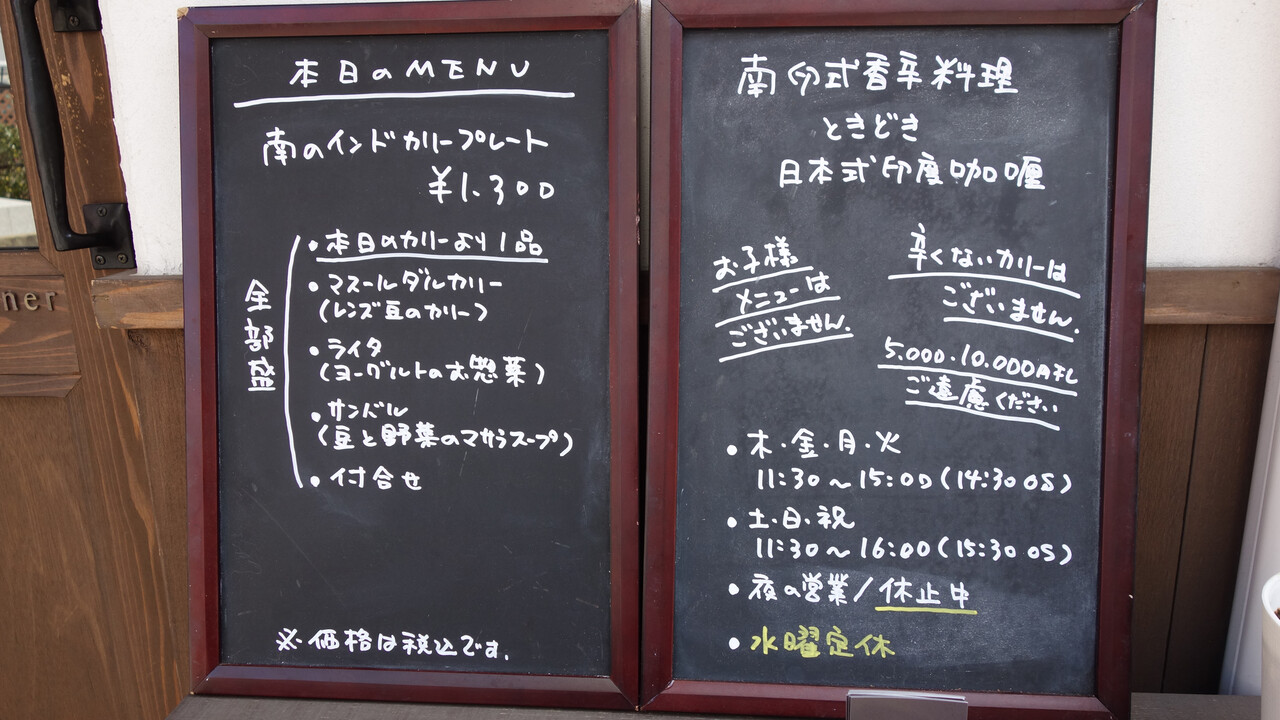 本日のMENU
南のインドカリープレート
¥1.300
全部盛
・本日のカリーより1品
・マスールダルカリー
(レンズ豆のカリー)
・ライタ
(ヨーグルトのお惣菜)
・サンバル
(豆と野菜のマサラスープ)
・付合せ
※価格は税込です.
南印式香辛料理
ときどき
日本式印度咖喱
お子様
メニューは
ございません.
辛くないカリーは
ございません.
5.000.10.000円札
ご遠慮ください
・木・金・月・火
11:30〜15:00(14:30 OS)
・土・日・祝
11:30〜16:00(15:30 OS)
・夜の営業/休止中
・水曜定休
her